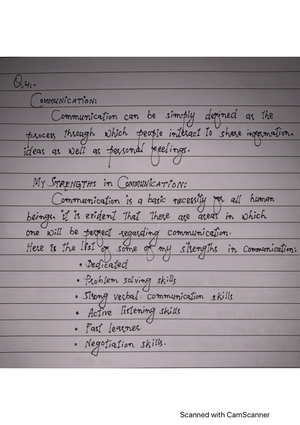 Q.4.-
COMMUNICATION:
Communication can be simply defined as the
process through which people interact to share information,
ideas as well as personal feelings.
MY STRENGTHS IN COMMUNICATION:
Communication is a basic necessity for all human
beings, it is evident that there are areas in which
one will be perfect regarding communication.
Here is the list of some of my strengths in communication:
• Dedicated
• Problem solving skills
• Strong verbal communication skills
• Active listening skills
• Fast learner
• Negotiation skills.
Scanned with CamScanner